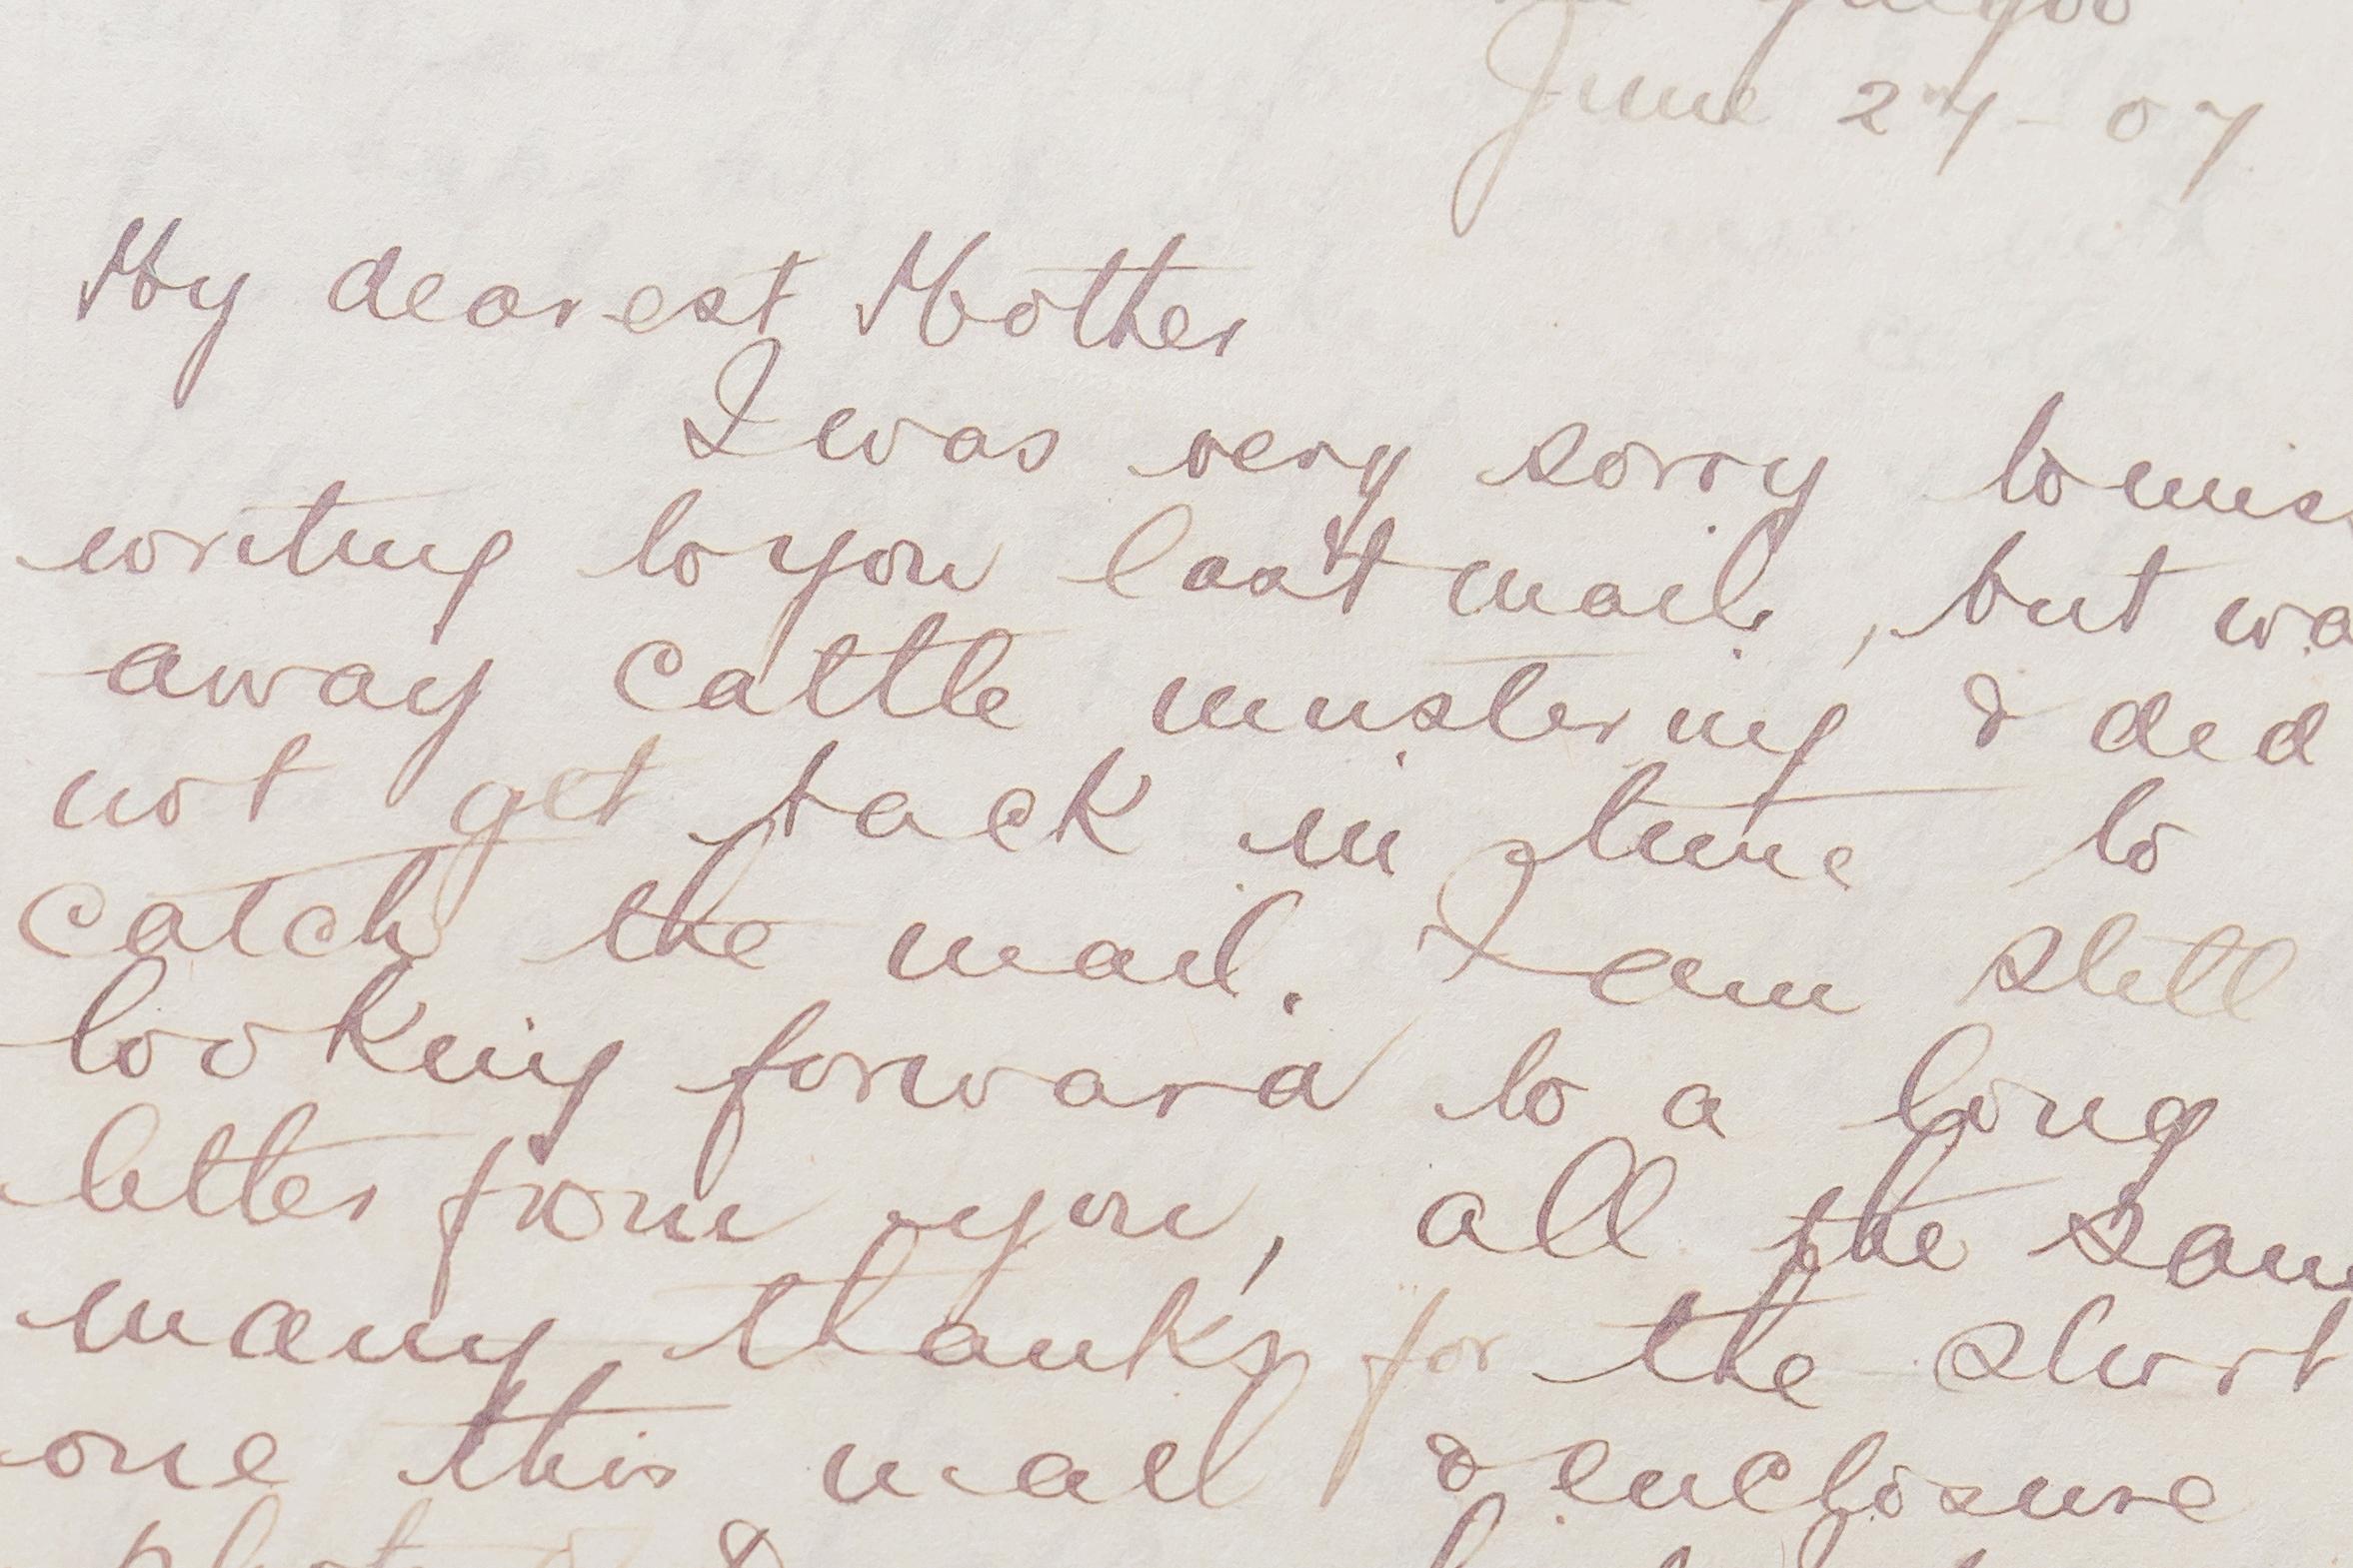 June 24-07
My dearest Mother
I was very sorry to miss
writing to you last mail, but wa
away cattle mustering & did
not get back in time to
catch the mail. I am still
looking forward to a long
letter from you, all the sam
many thanks for the short
one this mail & enclosure